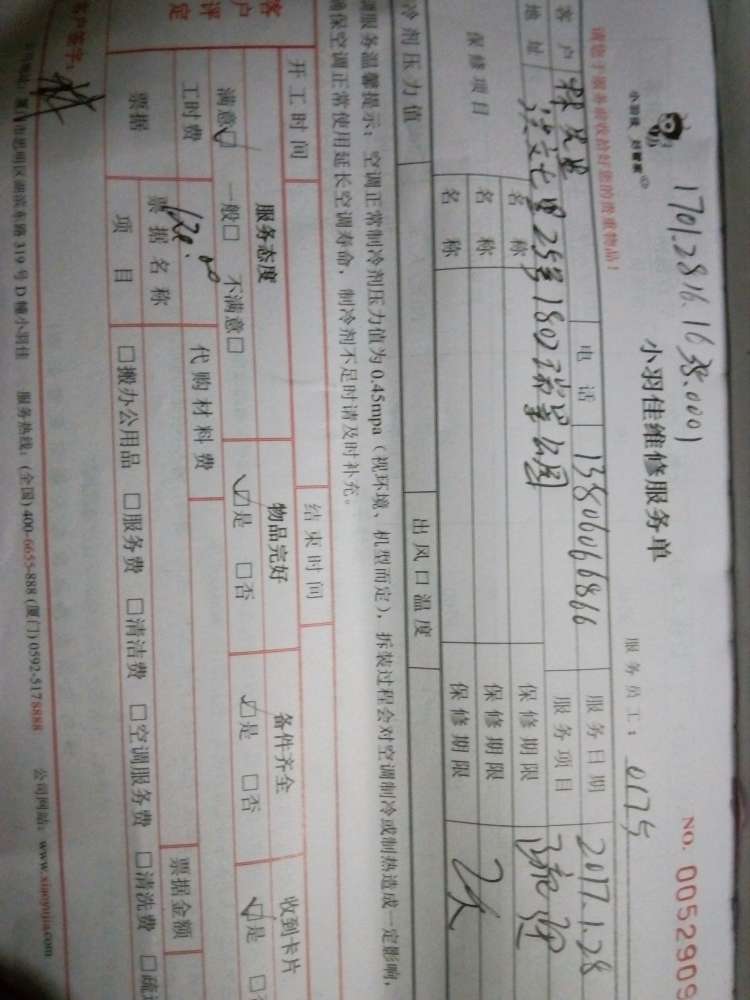 1701.2816.1638.0001
小羽佳 好管家
小羽佳维修服务单
NO. 0052909
请您于服务前收拾好您的贵重物品！
服务员工：0175
客户 林先生 电话 13806066866 服务日期 2017.1.28
地址 七里25号1802瑞景公园 服务项目
保修项目 名称 保修期限
名称 保修期限
名称 保修期限
冷剂压力值 出风口温度
服务温馨提示：空调正常制冷剂压力值为0.45mpa（视环境、机型而定），拆装过程会对空调制冷或制热造成一定影响，
确保空调正常使用延长空调寿命，制冷剂不足时请及时补充。
开工时间 结束时间
客户评定 服务态度 物品完好 备件齐全 收到卡片
满意☑ 一般□ 不满意□ ☑是 □否 ☑是 □否 ☑是 □
工时费 120.00 代购材料费
票据 票据名称 票据金额
项目 □搬办公用品 □服务费 □清洁费 □空调服务费 □清洗费 □疏
客户签字： 林
市思明区湖滨东路319号D幢小羽佳 服务热线：(全国)400-6655-888 (厦门)0592-5178888 公司网站：www.xiaoyujia.com